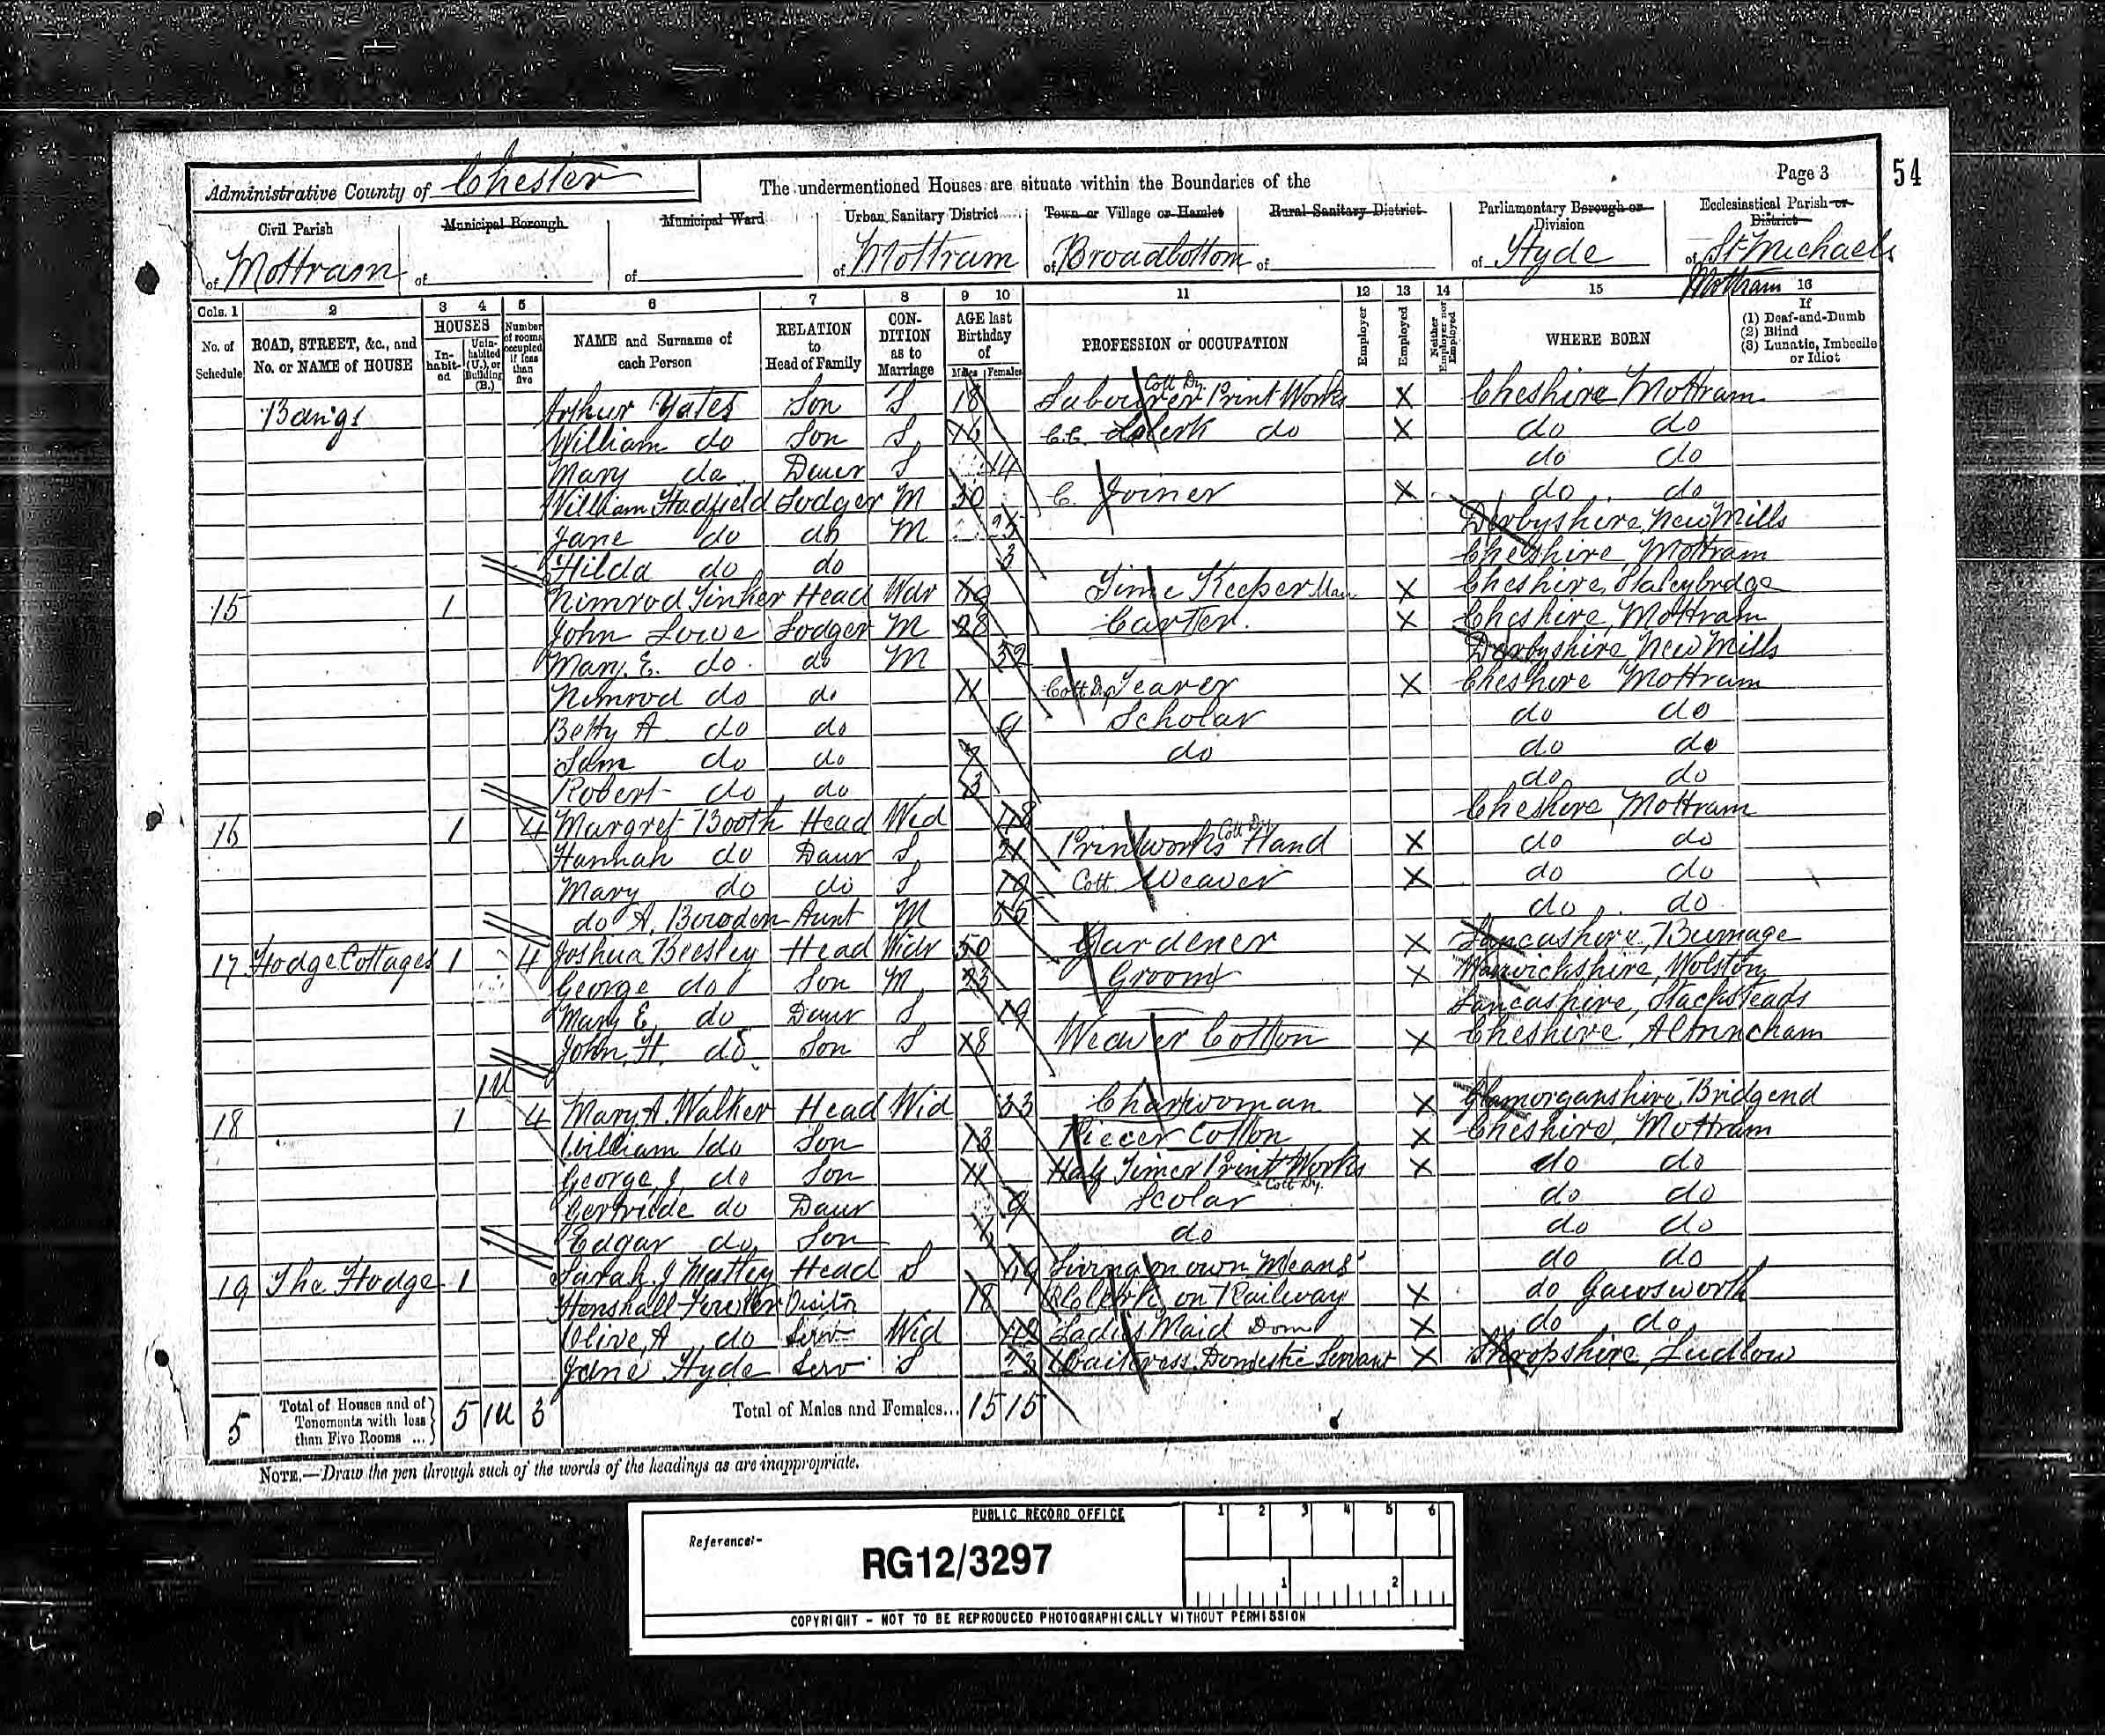 Administrative County of Chester The undermentioned Houses are situate within the Boundaries of the Page 3 54
Civil Parish Municipal Borough Municipal Ward Urban Sanitary District Town or Village or Hamlet Rural Sanitary District Parliamentary Borough or Division Ecclesiastical Parish or District
of Mottram of of of Mottram of Broadbottom of of Hyde of St Michaels Mottram
Cols. 1 2 3 4 5 6 7 8 9 10 11 12 13 14 15 16
No. of Schedule ROAD, STREET, &c., and No. or NAME of HOUSE HOUSES Inhabited Uninhabited (U.), or Building (B.) Number of rooms occupied if less than five NAME and Surname of each Person RELATION to Head of Family CONDITION as to Marriage AGE last Birthday of Males Females PROFESSION or OCCUPATION Employer Employed Neither Employer nor Employed WHERE BORN If (1) Deaf-and-Dumb (2) Blind (3) Lunatic, Imbecile or Idiot
Arthur Yates Son S 18 Labourer Cott Dy. Print Works X Cheshire Mottram
William do Son S 16 Clerk do X do do
Mary do Daur S 14 do do
William Hadfield Lodger M 30 Joiner X do do
Jane do do M 25 Derbyshire, New Mills
Hilda do do 3 Cheshire, Mottram
15 1 Nimrod Tinker Head Wdr Time Keeper X Cheshire, Staleybridge
John Lowe Lodger M 28 Carter X Cheshire, Mottram
Mary E. do do M 32 Derbyshire New Mills
Nimrod do do 11 Cott Dy Tearer X Cheshire Mottram
Betty A do do 9 Scholar do do
Sam do do 7 do do do
Robert do do 3 do do
16 1 4 Margret Booth Head Wid 48 Cheshire Mottram
Hannah do Daur S 21 Printworks Cott Dy Hand X do do
Mary do do S 19 Cott Weaver X do do
do A. Bowden Aunt M 55 do do
17 Hodge Cottages 1 4 Joshua Beesley Head Widr 50 Gardener X Lancashire, Burnage
George do Son M 23 Groom X Warwickshire, Wolston
Mary E. do Daur S 19 Lancashire, Stacksteads
John H. do Son S 18 Weaver Cotton X Cheshire, Altrincham
1U
18 1 4 Mary A. Walker Head Wid 33 Charwoman X Glamorganshire Bridgend
William do Son 13 Piecer Cotton X Cheshire, Mottram
George J do Son 11 Half Timer Print Works Cott Dy. X do do
Gertrude do Daur 9 Scolar do do
Edgar do Son do do do
19 The Hodge 1 Sarah J Matley Head S 49 Living on own Means do do
Henshall Fowler Visitor 18 Clerk on Railway X do Gawsworth
Olive A do Serv Wid 48 Ladies Maid Dom X do do
Jane Hyde Serv S 23 Waitress Domestic Servant X Shropshire, Ludlow
5 Total of Houses and of Tenements with less than Five Rooms ... 5 1U 3 Total of Males and Females... 15 15
NOTE.—Draw the pen through such of the words of the headings as are inappropriate.
PUBLIC RECORD OFFICE 1 2 3 4 5 6
Reference:-
RG12/3297
1 2
COPYRIGHT - NOT TO BE REPRODUCED PHOTOGRAPHICALLY WITHOUT PERMISSION